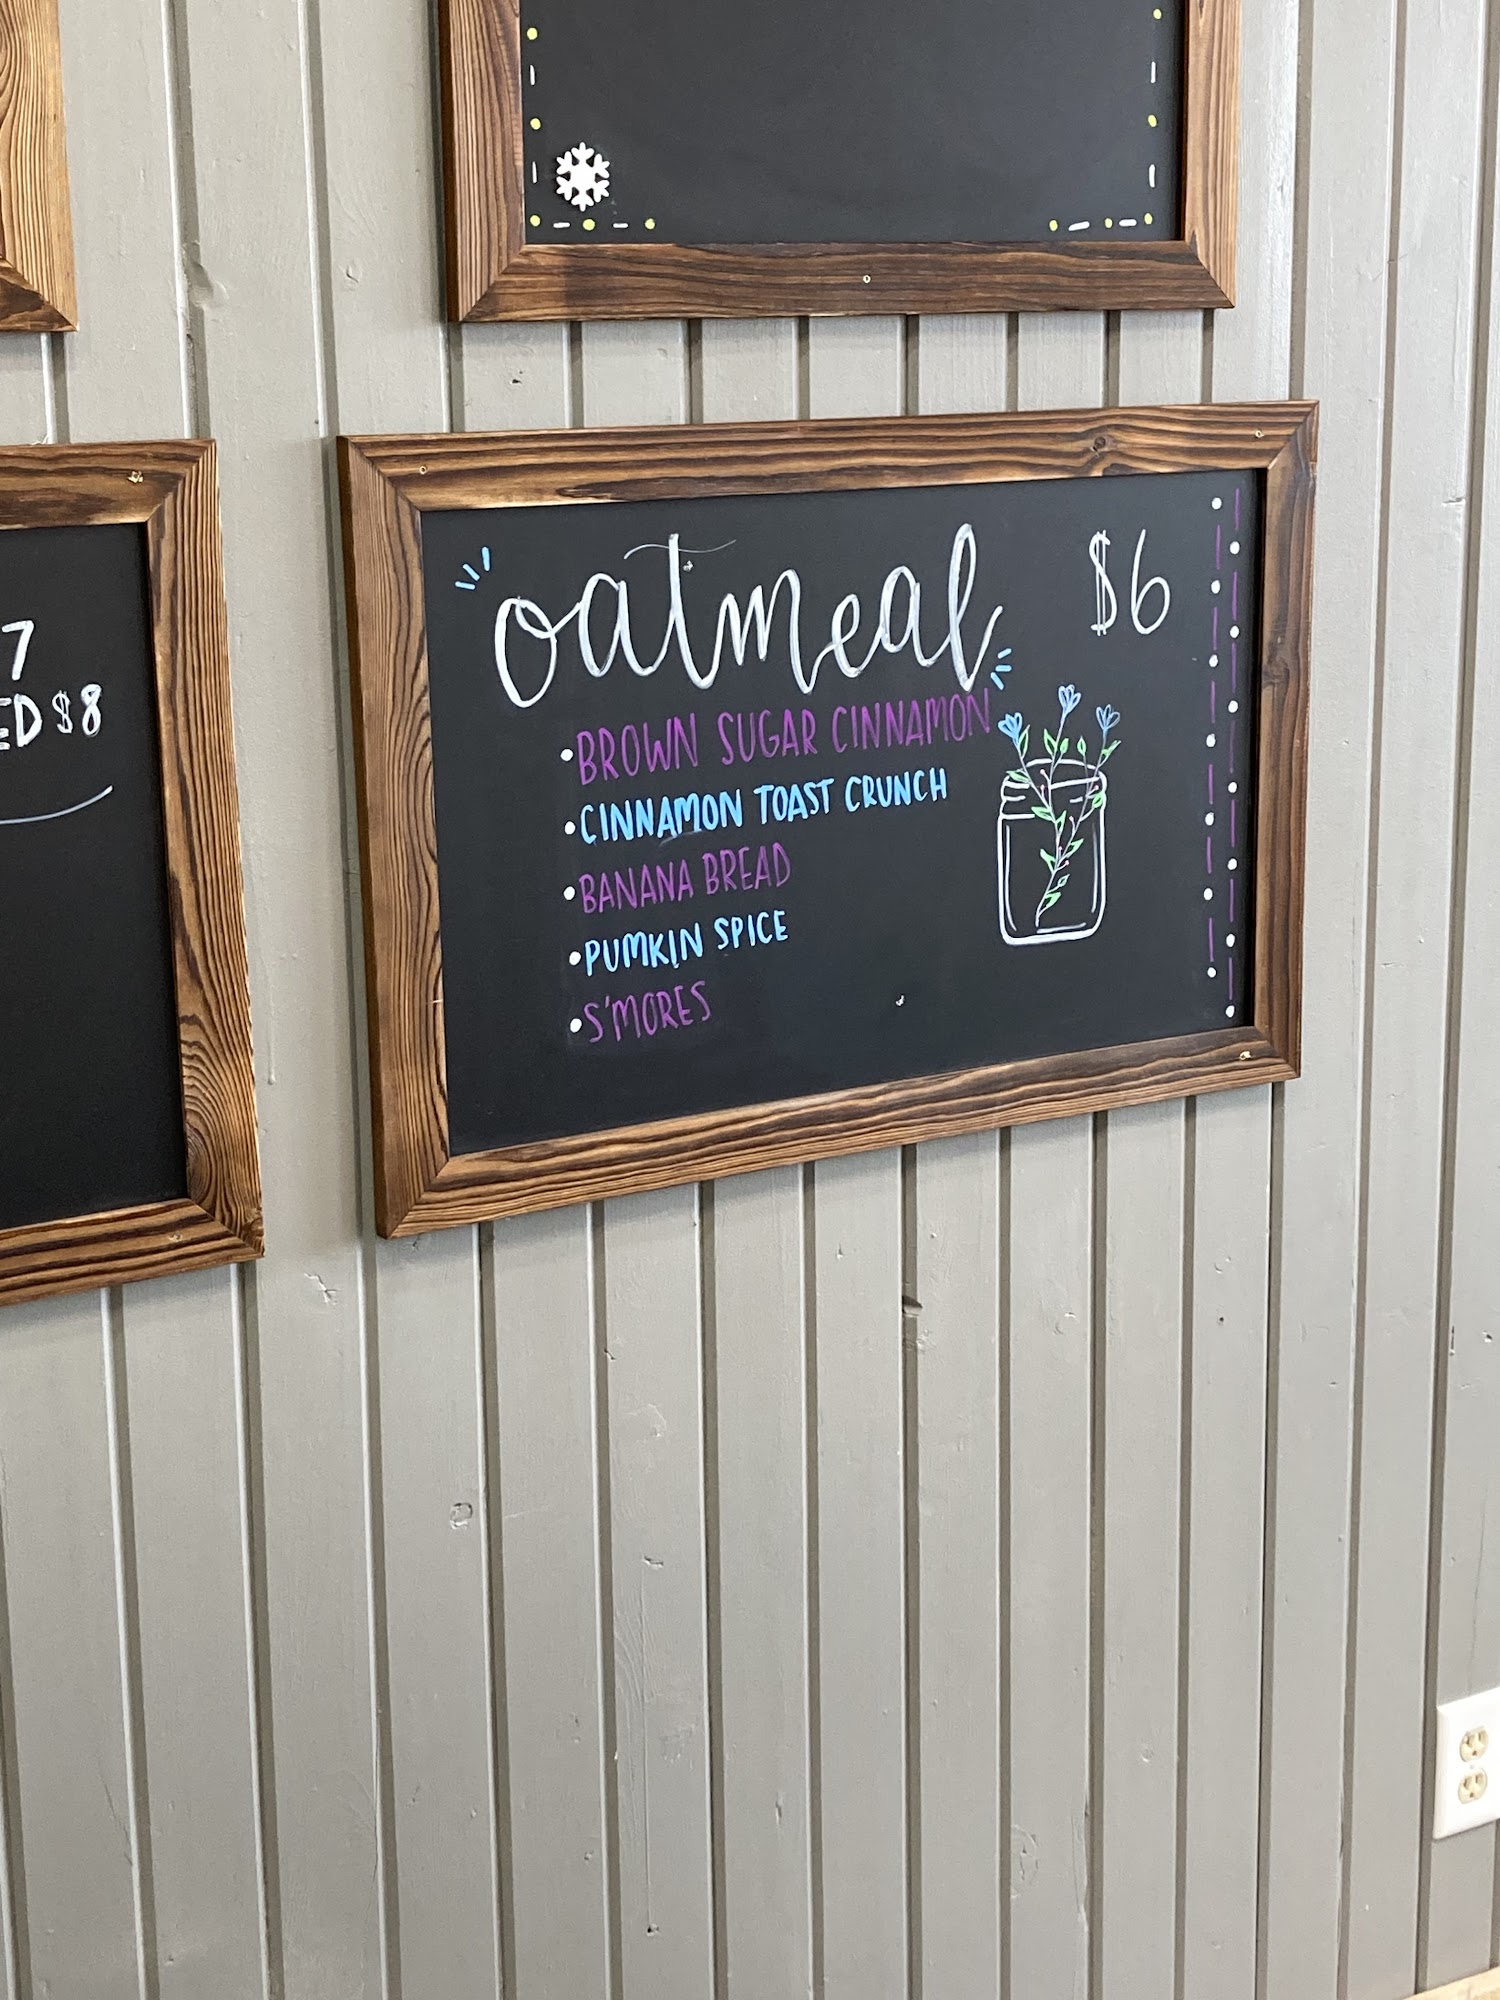 7
ED $8
oatmeal $6
• BROWN SUGAR CINNAMON
• CINNAMON TOAST CRUNCH
• BANANA BREAD
• PUMKIN SPICE
• S'MORES